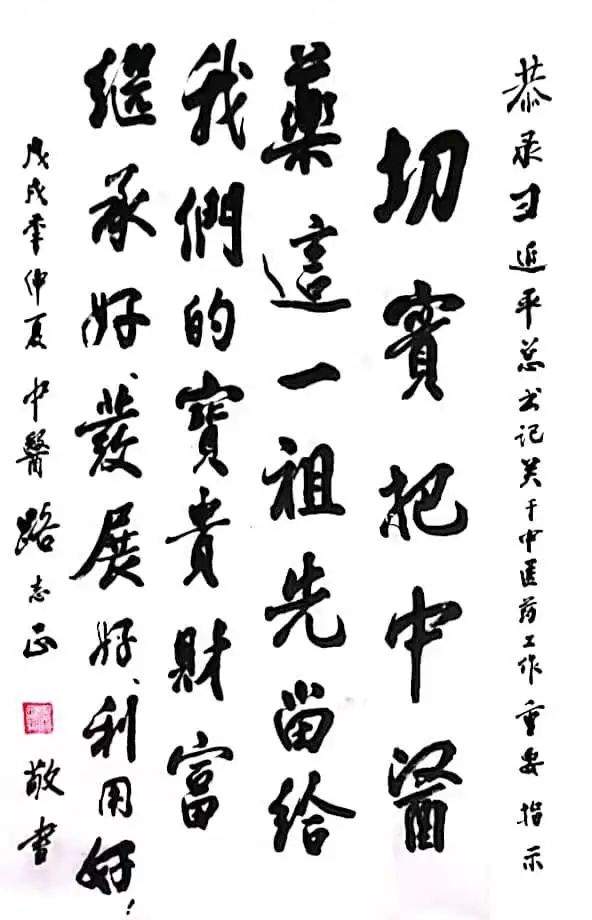 恭录习近平总书记关于中医药工作重要指示
切实把中醫
藥這一祖先留给
我們的寶貴財富
继承好、發展好、利用好！
戊戌年仲夏 中醫路志正 敬书